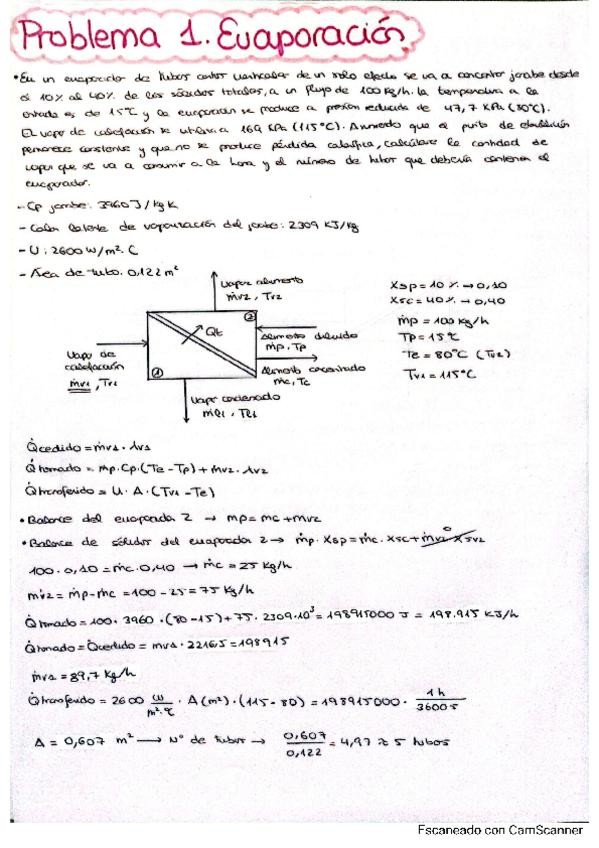 Problema 1. Evaporación
• En un evaporador de tubos cortos verticales de un solo efecto se va a concentrar jarabe desde
el 10% al 40% de los sólidos totales, a un flujo de 100 Kg/h. La temperatura a la
entrada es de 15°C y la evaporación se produce a presión reducida de 47,7 KPa (80°C).
El vapor de calefacción se utiliza a 169 KPa (115°C). Asumiendo que el punto de ebullición
permanece constante y que no se produce pérdida calorífica, calcúlese la cantidad de
vapor que se va a consumir a la hora y el número de tubos que debería contener el
evaporador.
- Cp jarabe: 3960 J/kg K
- Calor latente de vaporización del jarabe: 2309 KJ/kg
- U: 2600 W/m². C
- Área de tubo: 0,122 m²
Vapor alimento
ṁv2, Tv2
XSP = 10% → 0,10
XSC = 40% → 0,40
ṁp = 100 kg/h
Tp = 15°C
Te = 80°C (Tv2)
Tv1 = 115°C
②
Qt
Alimento diluido
ṁp, Tp
Vapor de
calefacción
ṁv1, Tv1
Alimento concentrado
ṁc, Tc
①
Vapor condensado
Q̇cedido = ṁv1 · λv1
Q̇tomado = ṁp · Cp · (Te - Tp) + ṁv2 · λv2
Q̇transferido = U · A · (Tv1 - Te)
• Balance del evaporador 2 → ṁp = ṁc + ṁv2
• Balance de sólidos del evaporador 2 → ṁp · XSP = ṁc · XSC + ṁv2 · XSV2 0
100 · 0,10 = ṁc · 0,40 → ṁc = 25 Kg/h
ṁv2 = ṁp - ṁc = 100 - 25 = 75 Kg/h
Q̇tomado = 100 · 3960 · (80 - 15) + 75 · 2309 · 10³ = 198915000 J = 198.915 KJ/h
Q̇tomado = Q̇cedido = ṁv1 · 2216,5 = 198915
ṁv1 = 89,7 kg/h
Q̇transferido = 2600 W/m².°C · A (m²) · (115 - 80) = 198915000 · 1h/3600s
A = 0,607 m² → Nº de tubos → 0,607/0,122 = 4,97 ≈ 5 tubos
Escaneado con CamScanner